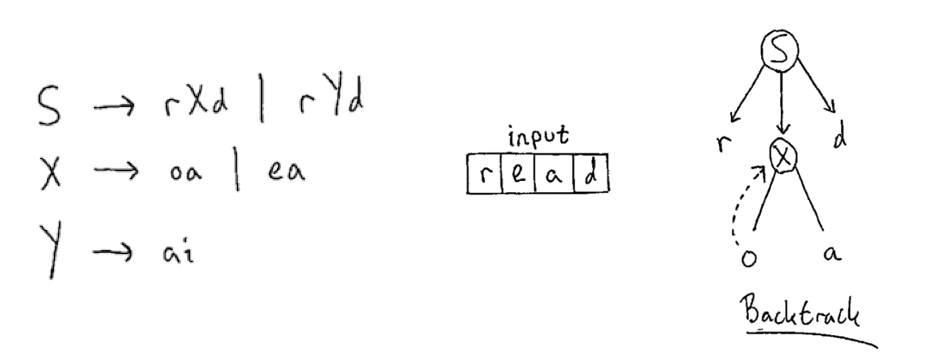 S → rXd | rYd
X → oa | ea
Y → ai
input
r e a d
S
r X d
o a
Backtrack